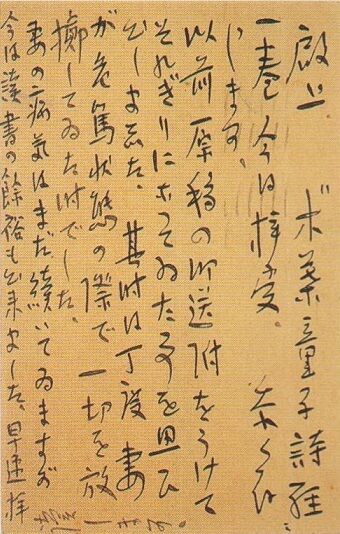 啓上 木葉童子詩経
一巻今日拝受 忝く存
じます、
以前原稿の御送附をうけて
それぎりになつてゐた事を思ひ
出しました。其時は丁度妻
が危篤状態の際で一切を放
擲してゐた時でした。
妻の病気はまだ続いてゐますが
今は読書の餘裕も出来ました。早速拝